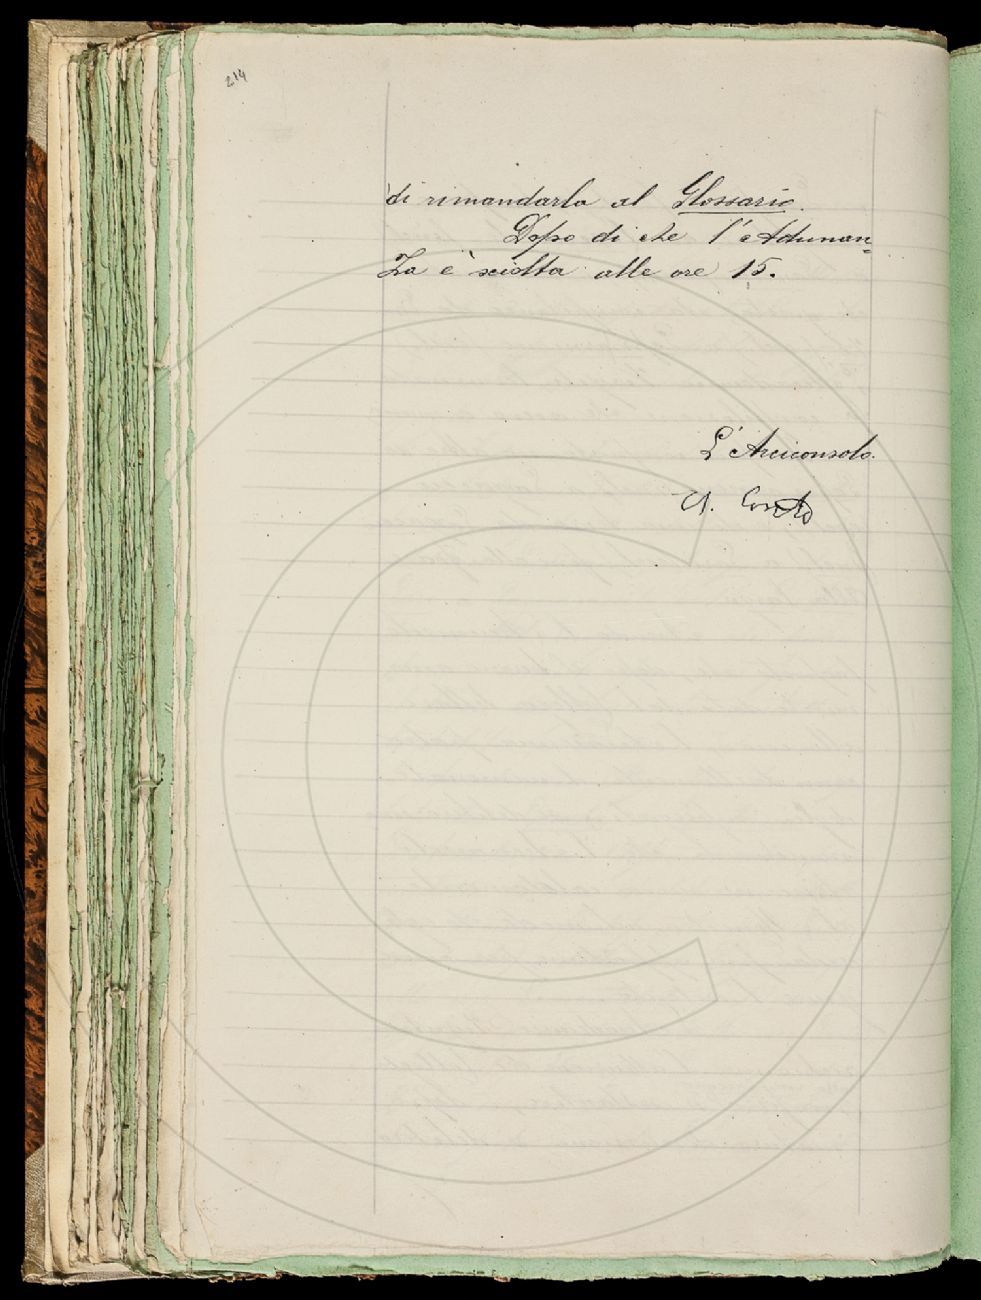 214
di rimandarla al Glossario.
Dopo di che l'Adunan=
za è sciolta alle ore 15.
L'Arciconsolo
A. Conti